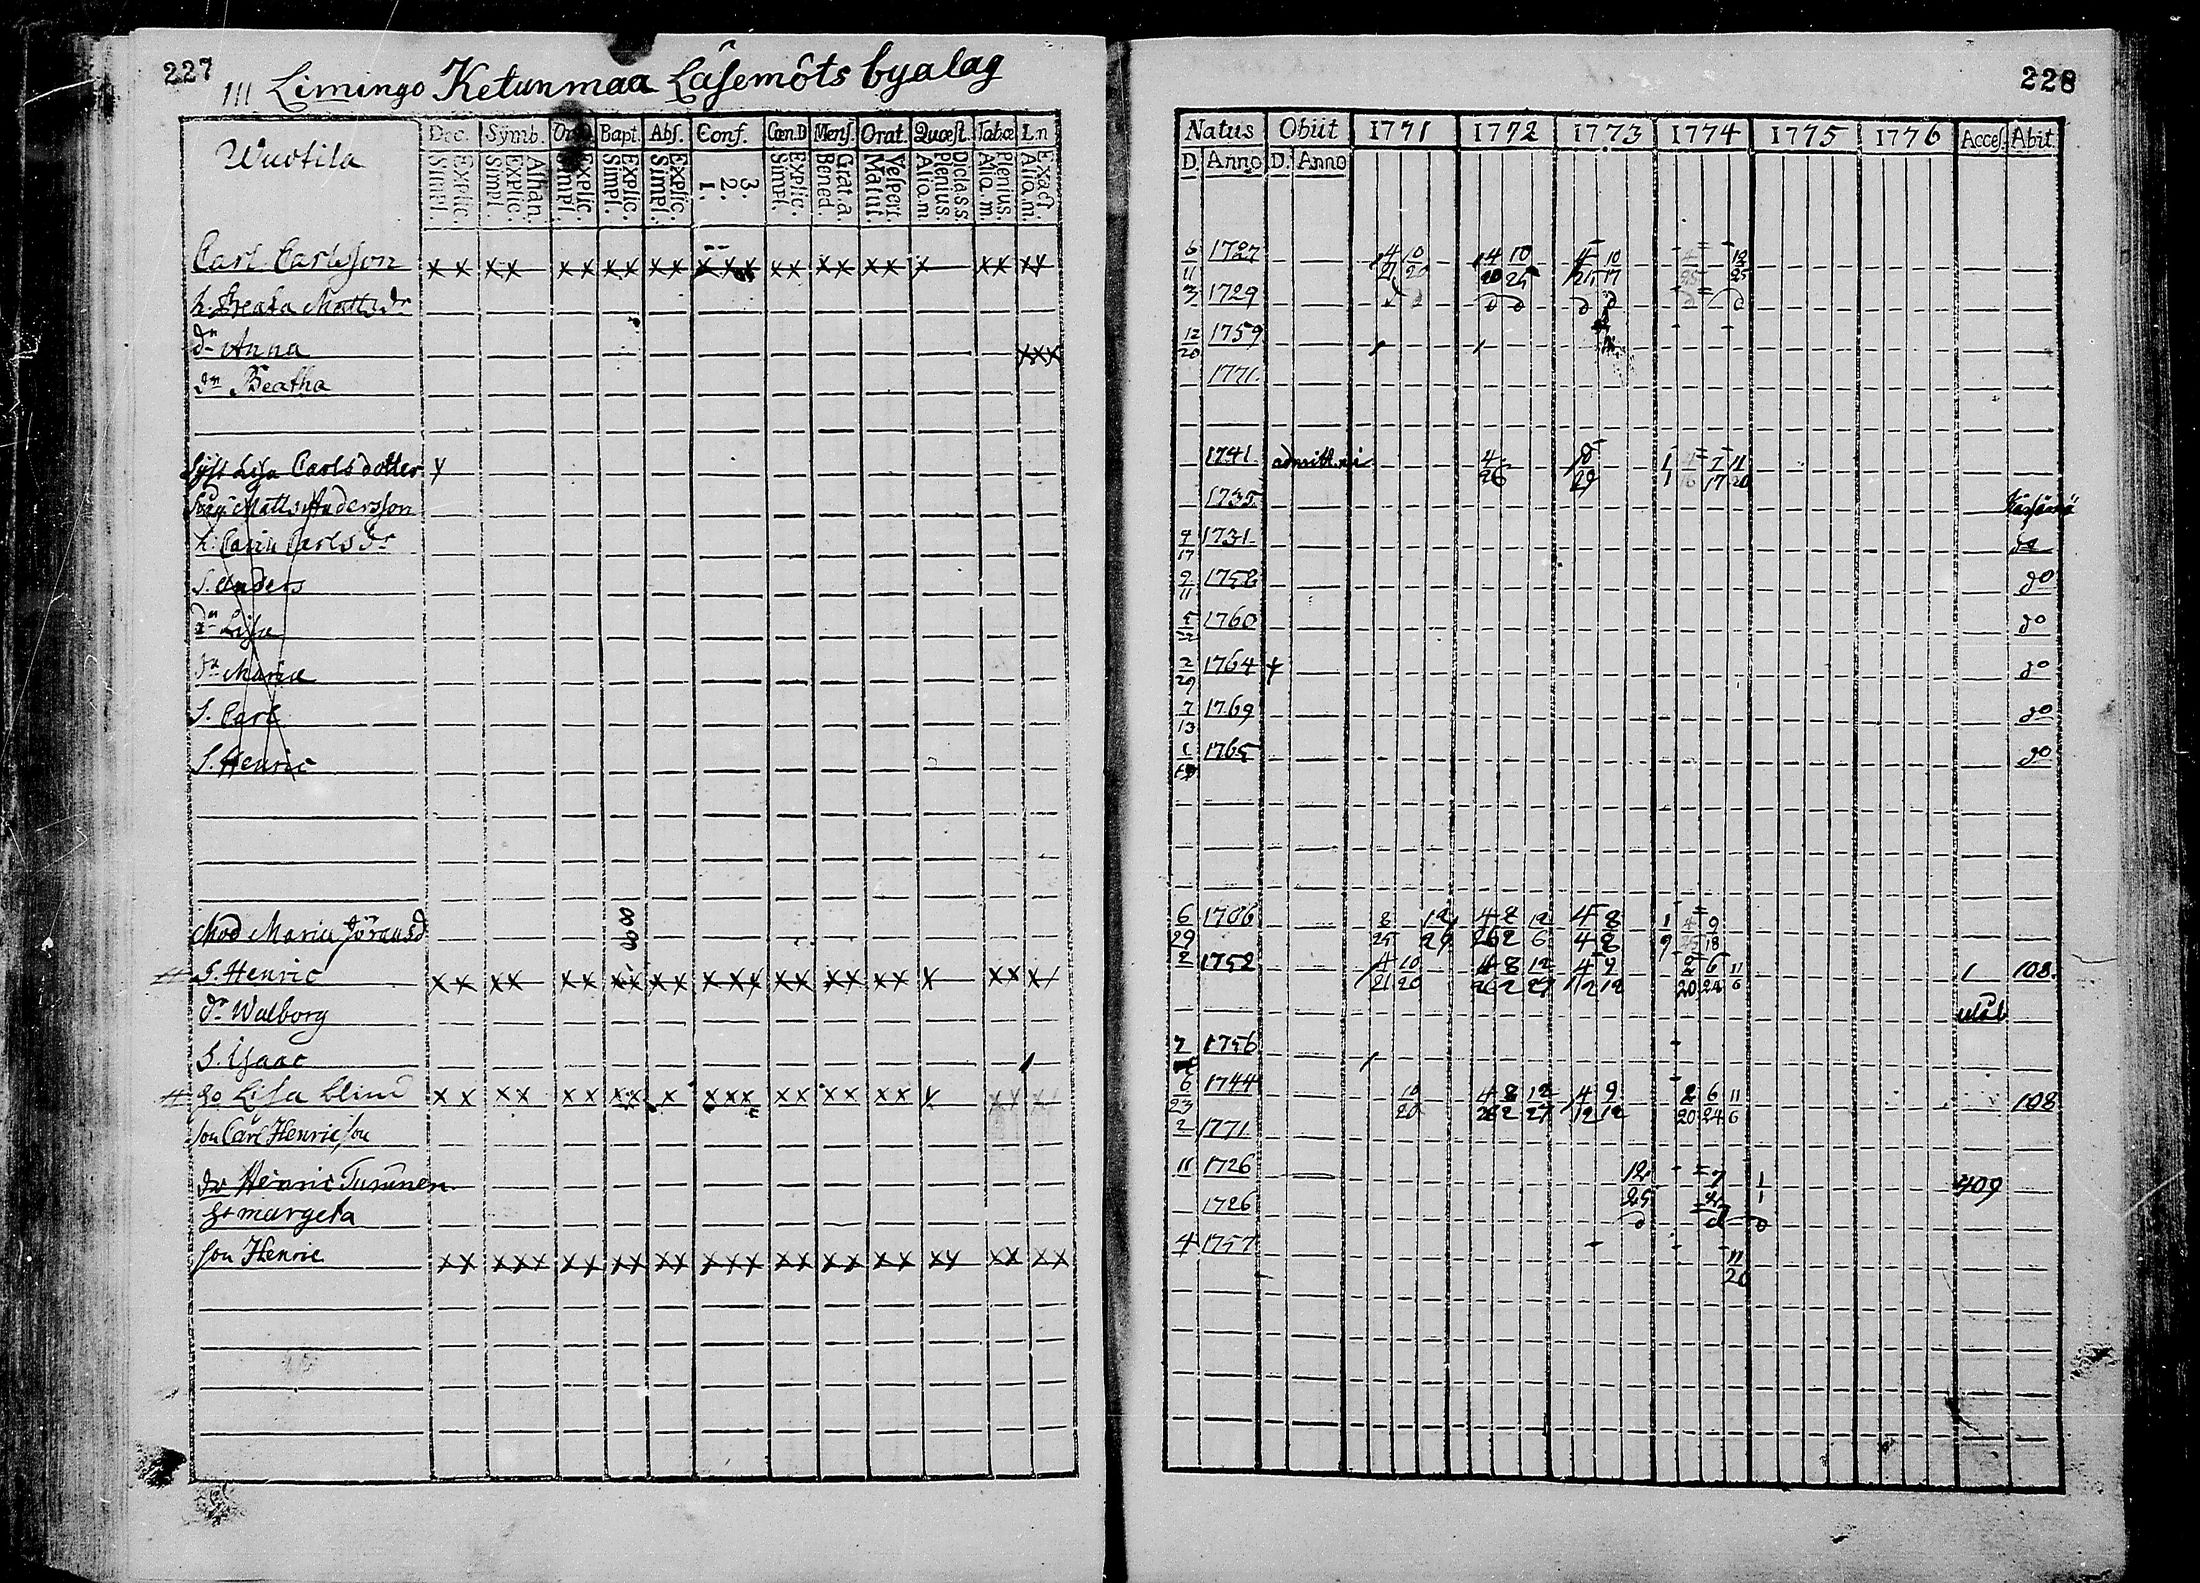 227
III Limingo Ketunmaa Läsemöts byalag
Wuotila Dec. Symb. Bapt. Abs. Conf. Cæn.D Mens. Orat. Quæst. Tabæ Ln
Simpl. Explic. Simpl. Explic. Athan. Simpl. Explic. Simpl. Explic. Simpl. Explic. 1. 2. 3. Simpl. Explic. Bened. Grat. a. Matut. Vespert. Aliq. m. Plenius. Dicla s.s. Aliq. m. Plenius. Aliq. m. Exact.
Carl Carlsson x x x x x x x x x x x x x x x x x x x x x x x x
h. Beata Matts dr
dr Anna x x x
dr Beatha
Syst Lisa Carlsdotter y
Matts Andersson
h. Carin Carls dr
S. Anders
dr Lisa
dr Maria
S. Carl
S. Henric
Mod Maria Jöransd
# S. Henric x x x x x x x x x x x x x x x x x x x x x x x x
dr Walborg
S. Isaac
# Lisa blind x x x x x x x x x x x x x x x x x x x x x x
son Carl Henricson
Henric Turunen
margeta
son Henric x x x x x x x x x x x x x x x x x x x x x x x x x x
228
Natus Obiit 1771 1772 1773 1774 1775 1776 Acces. Abit.
D. Anno D. Anno
6/11 1727 4/21 10/20 4/20 10/25 4/25 10/17 12/25
3/7 1729
12/20 1759
1771
1741 4/26
1735
9/17 1731 do
9/11 1758 do
5/22 1760 do
2/29 1764 + do
7/13 1769 do
1 1765 do
6/29 1706 8/25 12/29 4/26 8/2 12/6 4/4 8/8 1/9 9/18
2 1752 4/21 10/20 4/26 8/2 12/27 4/12 9/12 2/20 6/24 11/6 1 108.
7 1756
6/23 1744 10/20 4/26 8/2 12/27 4/12 9/12 2/20 6/24 11/6 108
2 1771
11 1726 12/25 1/1 409
1726
4 1757 11/20